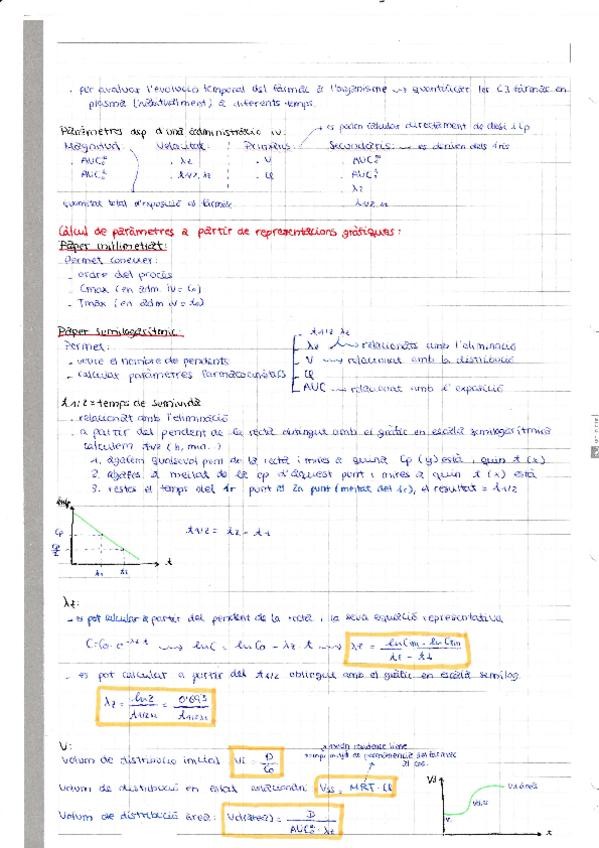 - per avaluar l'evolució temporal del fàrmac a l'organisme → quantificar les C fàrmac en
plasma (habitualment) a diferents temps.
Paràmetres dsp d'una administració iv: → es poden calcular directament de dosi i Cp
Magnitud: Velocitat: Primaris: Secundaris: → es deriven dels 1ris
- AUC₀^∞ - λz - V - AUC₀^∞
- AUC₀^t - t1/2 λz - Cl - AUC₀^t
λz
quantitat total d'exposició al fàrmac t1/2 λz
Càlcul de paràmetres a partir de representacions gràfiques:
Paper mil·limetrat:
Permet conèixer:
- ordre del procés
- Cmax (en adm. iv = C0)
- Tmax (en adm iv = t0)
Paper semilogarítmic: - t1/2 λz
Permet: - λz → relacionats amb l'eliminació
- veure el nombre de pendents - V → relacionat amb la distribució
- calcular paràmetres farmacocinètics - Cl
- AUC → relacionat amb l'exposició
t1/2 = temps de semivida
- relacionat amb l'eliminació
- a partir del pendent de la recta obtingut amb el gràfic en escala semilogarítmica
calculem t1/2 (h, min..)
1. agafem qualsevol punt de la recta i mires a quina Cp (y) està i quin t (x)
2. agafes la meitat de la Cp d'aquest punt i mires a quin t (x) està
3. restes el temps del 1r punt al 2n punt (meitat del 1r), el resultat = t1/2
Cp
Cp/2
t1 t2 t
t1/2 = t2 - t1
λz:
- es pot calcular a partir del pendent de la recta i la seva equació representativa
C = C0 · e^-λz·t → lnC = lnC0 - λz · t →
- es pot calcular a partir del t1/2 obtingut amb el gràfic en escala semilog.
λz = ln2 / t1/2 λz = 0'693 / t1/2 λz
V:
Volum de distribució inicial Vi = D / C0
mean residence time
Volum de distribució en estat estacionari: Vss = MRT · Cl
Volum de distribució àrea: Vd(àrea) = D / AUC₀^∞ · λz
Vd
Vd àrea
Vdss
Vi
t